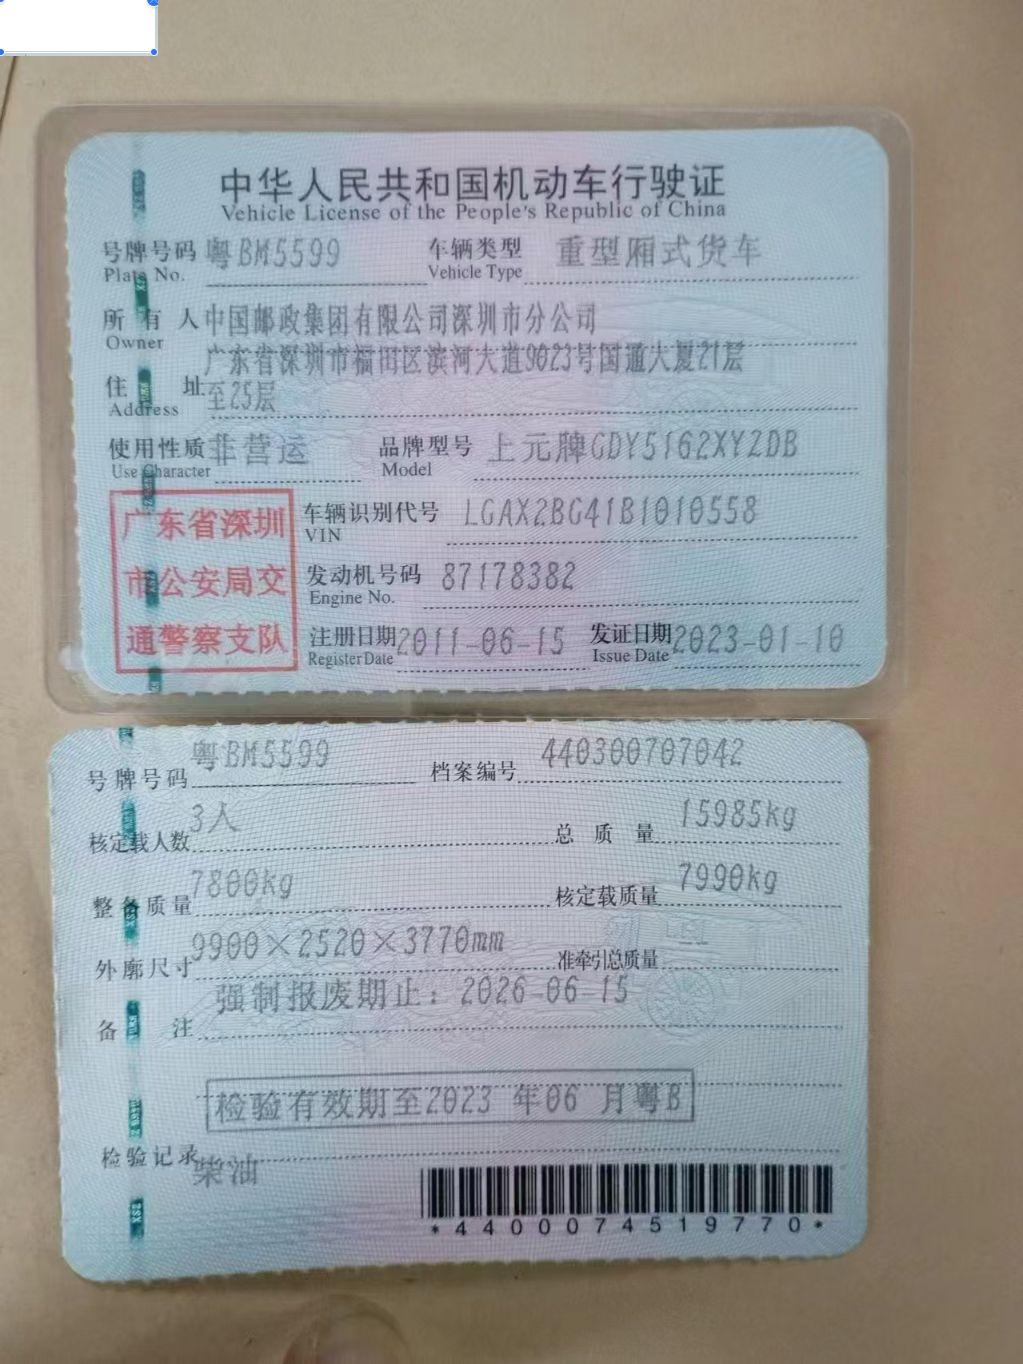 中华人民共和国机动车行驶证
Vehicle License of the People's Republic of China
号牌号码 粤BM5599 车辆类型 重型厢式货车
Plate No. Vehicle Type
所有人 中国邮政集团有限公司深圳市分公司
Owner
广东省深圳市福田区滨河大道9023号国通大厦21层
住址 至25层
Address
使用性质 非营运 品牌型号 上元牌GDY5162XYZDB
Use Character Model
广东省深圳
市公安局交
通警察支队
车辆识别代号 LGAX2BG41B1010558
VIN
发动机号码 87178382
Engine No.
注册日期 2011-06-15 发证日期 2023-01-10
Register Date Issue Date
号牌号码 粤BM5599 档案编号 440300707042
核定载人数 3人 总质量 15985kg
整备质量 7800kg 核定载质量 7990kg
外廓尺寸 9900×2520×3770mm 准牵引总质量
备注 强制报废期止：2026-06-15
检验有效期至2023 年06 月粤B
检验记录
柴油
*4400074519770*